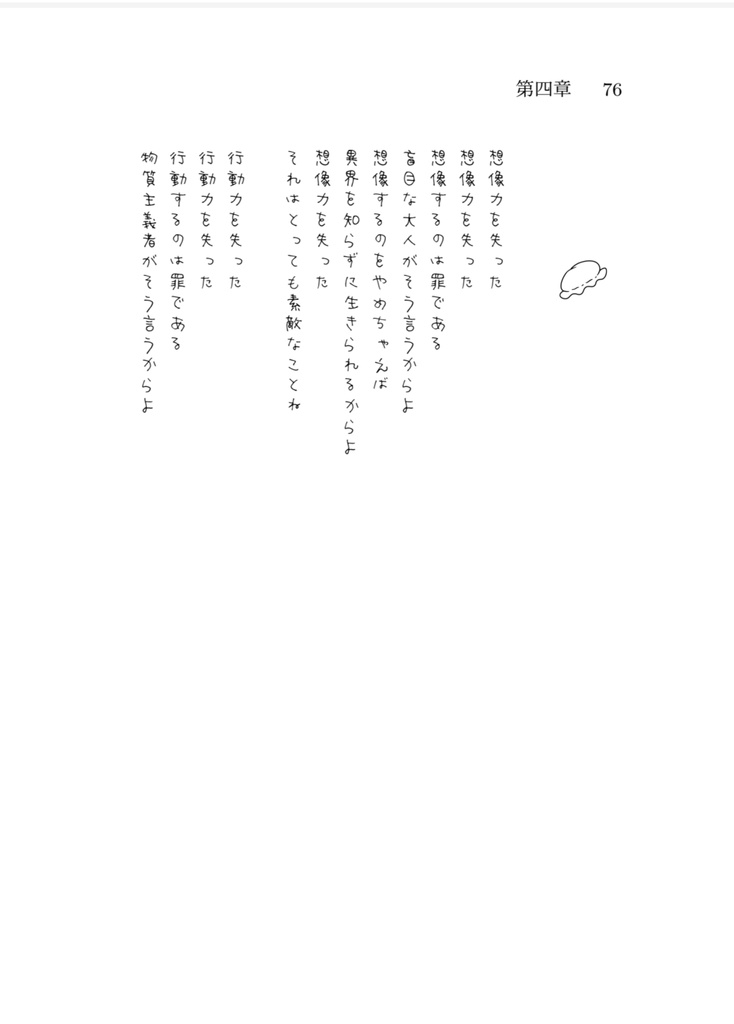 第四章 76
想像力を失った
想像力を失った
想像するのは罪である
盲目な大人がそう言うからよ
想像するのをやめちゃえば
異界を知らずに生きられるからよ
想像力を失った
それはとっても素敵なことね
行動力を失った
行動力を失った
行動するのは罪である
物質主義者がそう言うからよ